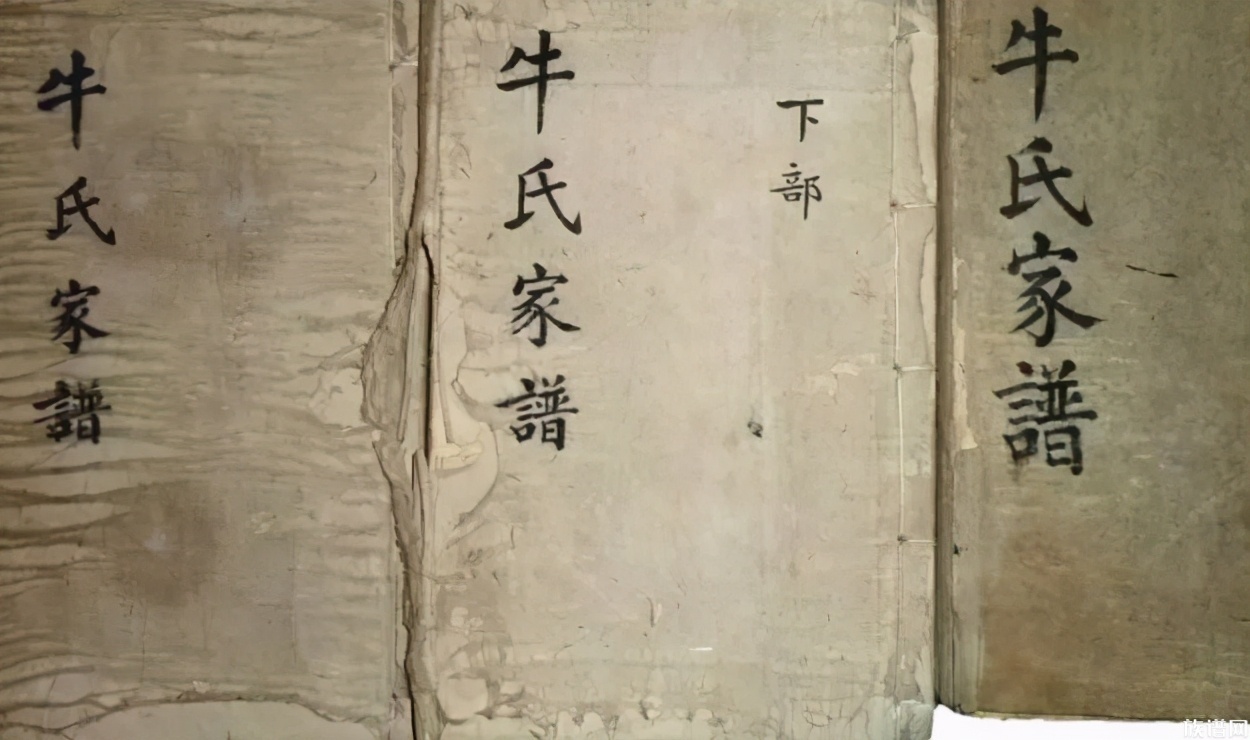 牛氏家譜
牛氏家譜
下部
牛氏家譜
族谱网